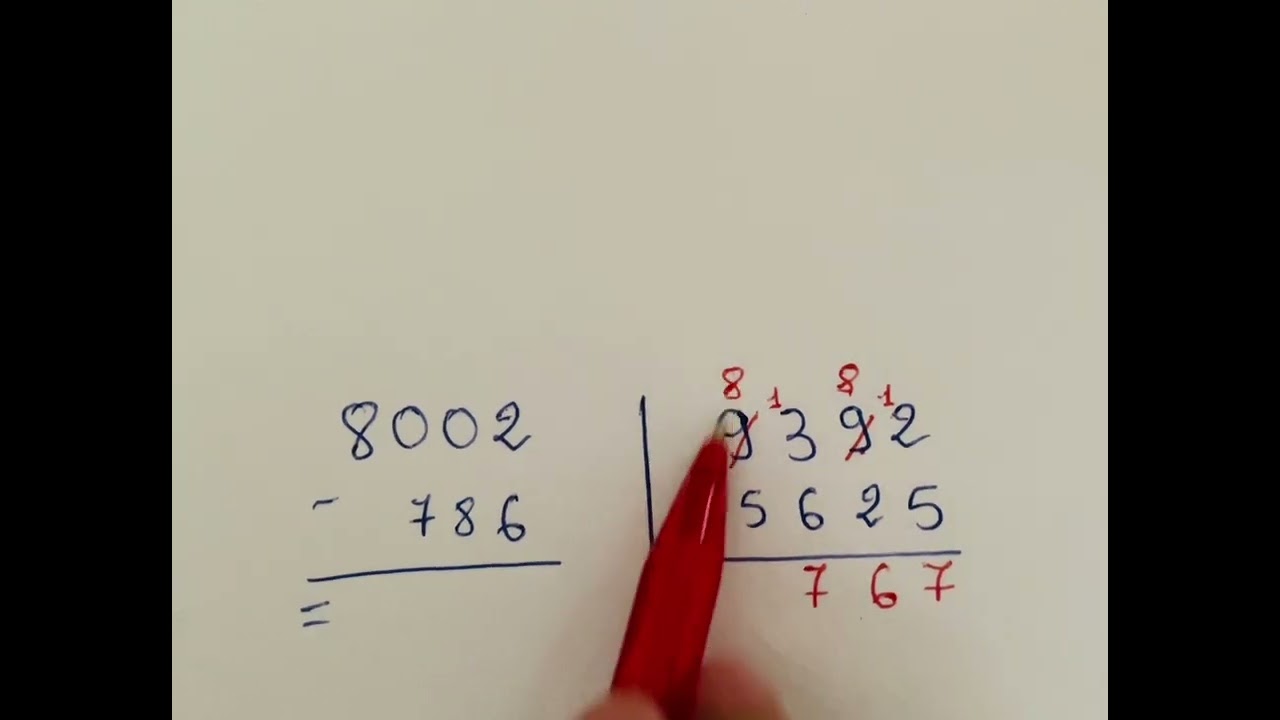 8 1 8 1
8002 9392
- 786 5625
= 767